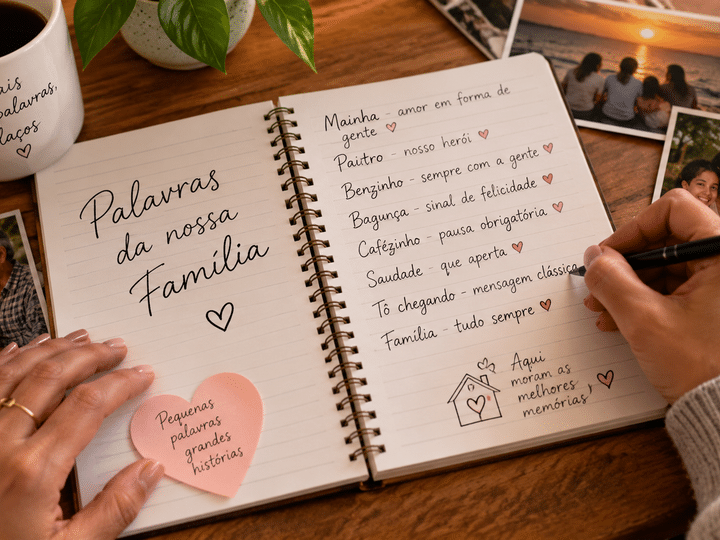 ais
palavras,
laços
Palavras
da nossa
Família
Pequenas
palavras
grandes
histórias
Mainha - amor em forma de
gente
Paitro - nosso herói
Benzinho - sempre com a gente
Bagunça - sinal de felicidade
Cafézinho - pausa obrigatória
Saudade - que aperta
Tô chegando - mensagem clássica
Família - tudo sempre
Aqui
moram as
melhores
memórias,